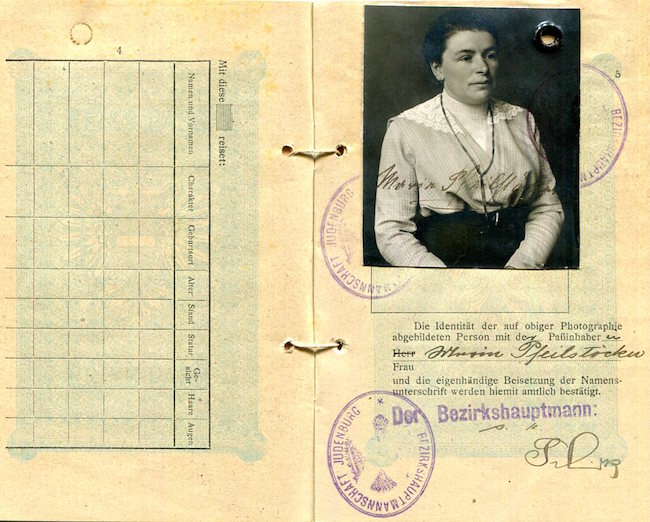 4
Mit diese reiset:
Namen und Vornamen
Charakter
Geburtsort
Alter
Stand
Statur
Ge-
sicht
Haare
Augen
5
BEZIRKSHAUPTM
BEZIRKSHAUPTMANNSCHAFT JUDENBURG
Maria Pfeilst
Die Identität der auf obiger Photographie
abgebildeten Person mit de Paßinhaber in
Herr Maria Pfeilstöcker
Frau
und die eigenhändige Beisetzung der Namens-
unterschrift werden hiemit amtlich bestätigt.
Der Bezirkshauptmann:
BEZIRKSHAUPTMANNSCHAFT JUDENBURG